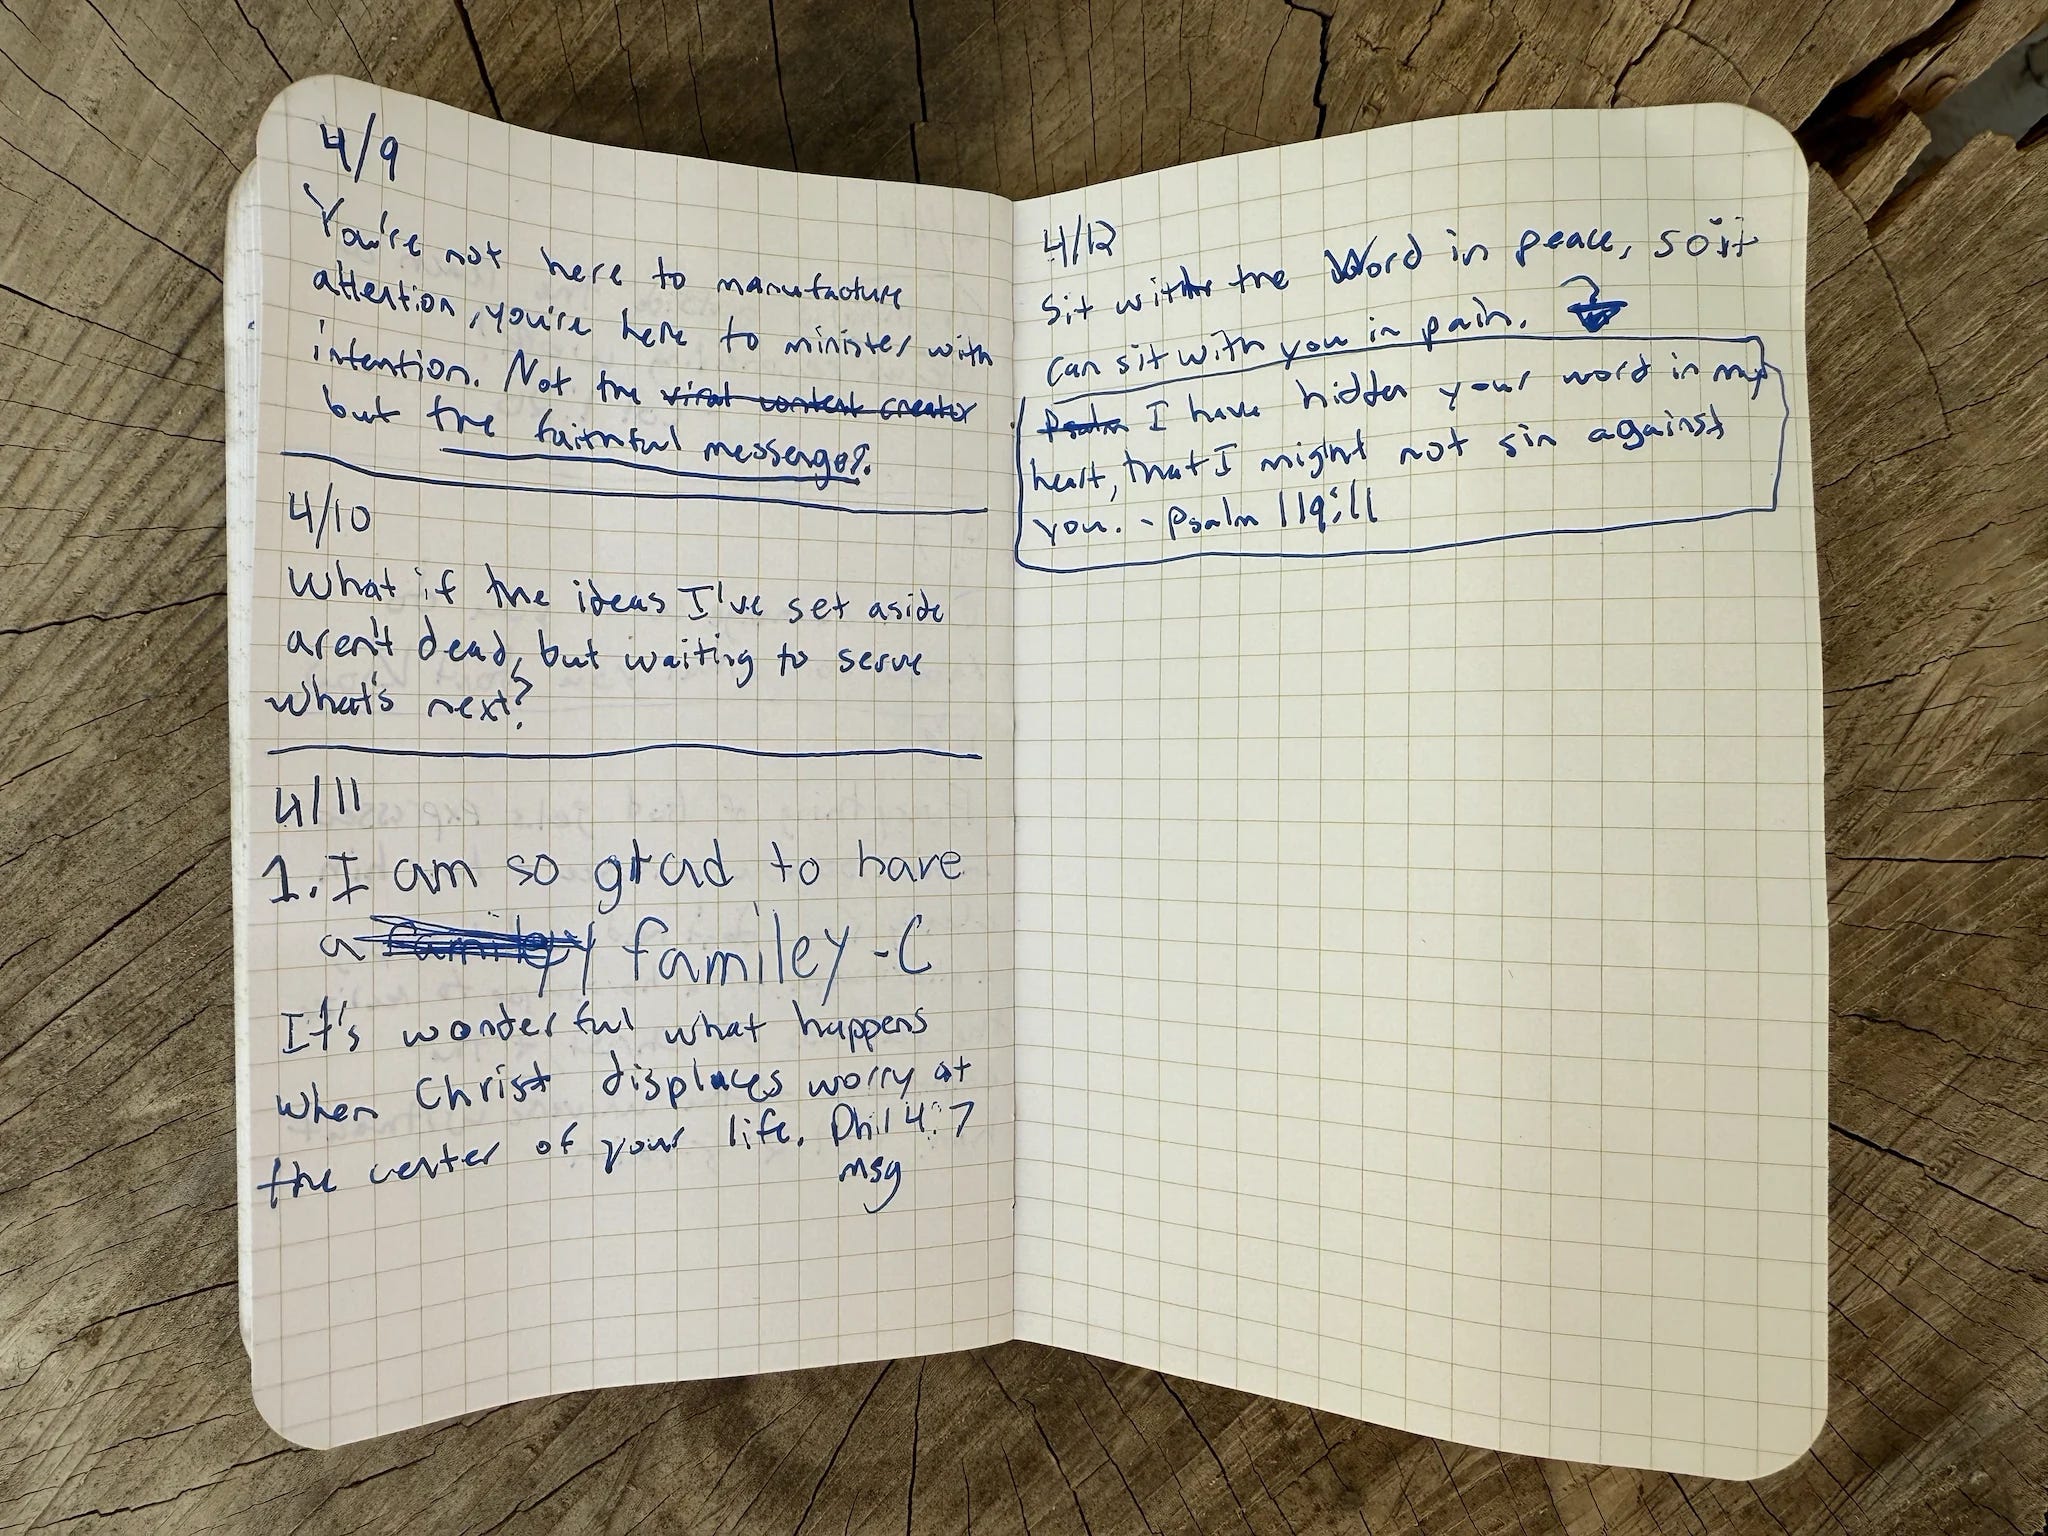 4/9
You're not here to manufacture
attention, you're here to minister with
intention. Not the viral content creator
but the faithful messenger.
4/10
What if the ideas I've set aside
aren't dead, but waiting to serve
what's next?
4/11
1. I am so glad to have
a family familey -C
It's wonderful what happens
when Christ displaces worry at
the center of your life. Phil 4:7
msg
4/12
Sit with the Word in peace, so it
can sit with you in pain.
Psalm I have hidden your word in my
heart, that I might not sin against
you. - Psalm 119:11